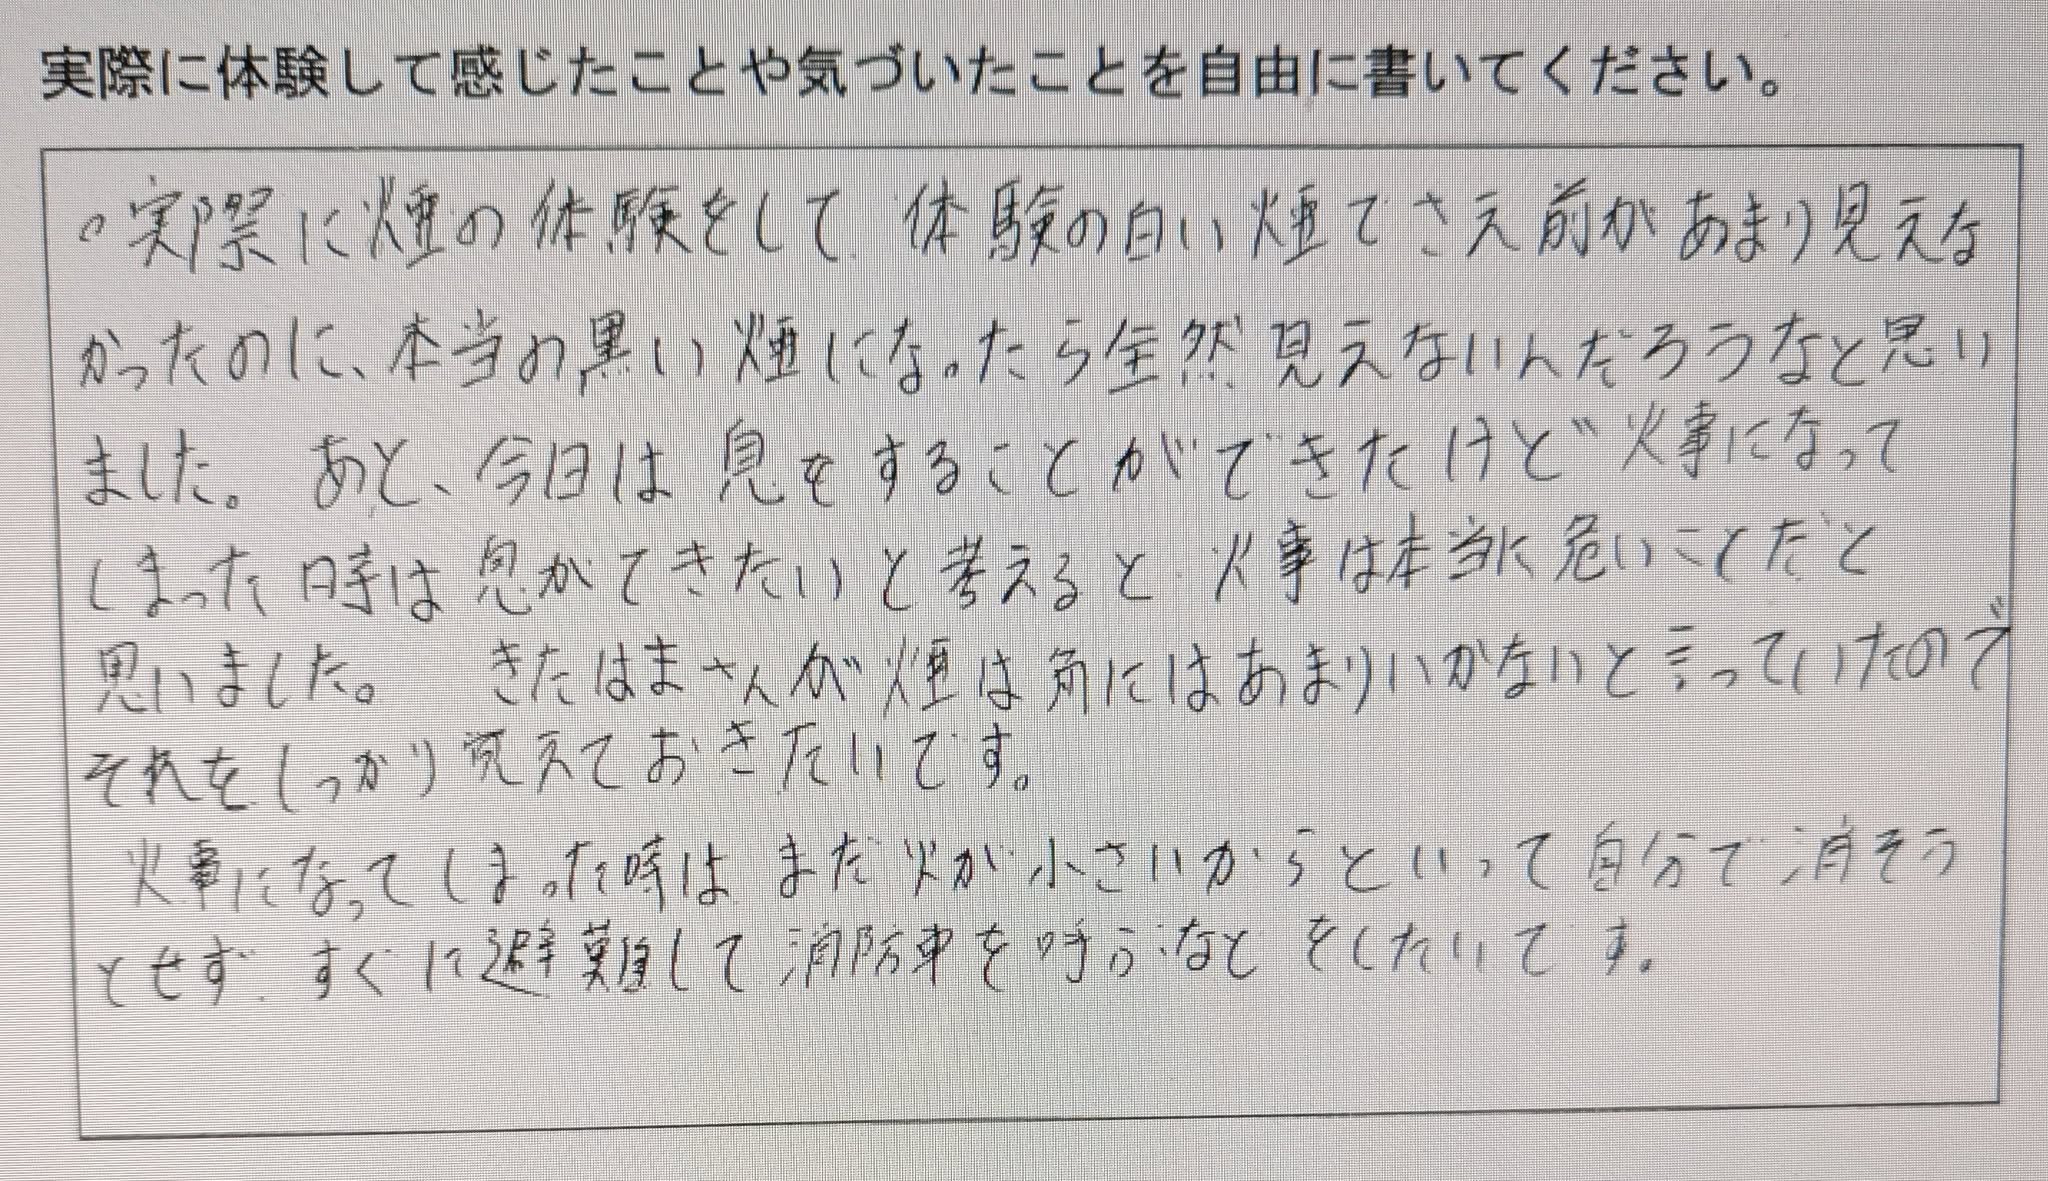 実際に体験して感じたことや気づいたことを自由に書いてください。
。実際に煙の体験をして 体験の白い煙でさえ前があまり見えな
かったのに、本当の黒い煙になったら全然見えないんだろうなと思い
ました。あと、今日は息をすることができたけど火事になって
しまった時は息ができたいと考えると 火事は本当に危いことだと
思いました。 きたはまさんが煙は角にはあまりいかないと言っていたので
それをしっかり覚えておきたいです。
火事になってしまった時は まだ火が小さいからといって自分で消そう
とせず すぐに避難して消防車を呼ぶなどをしたいです。